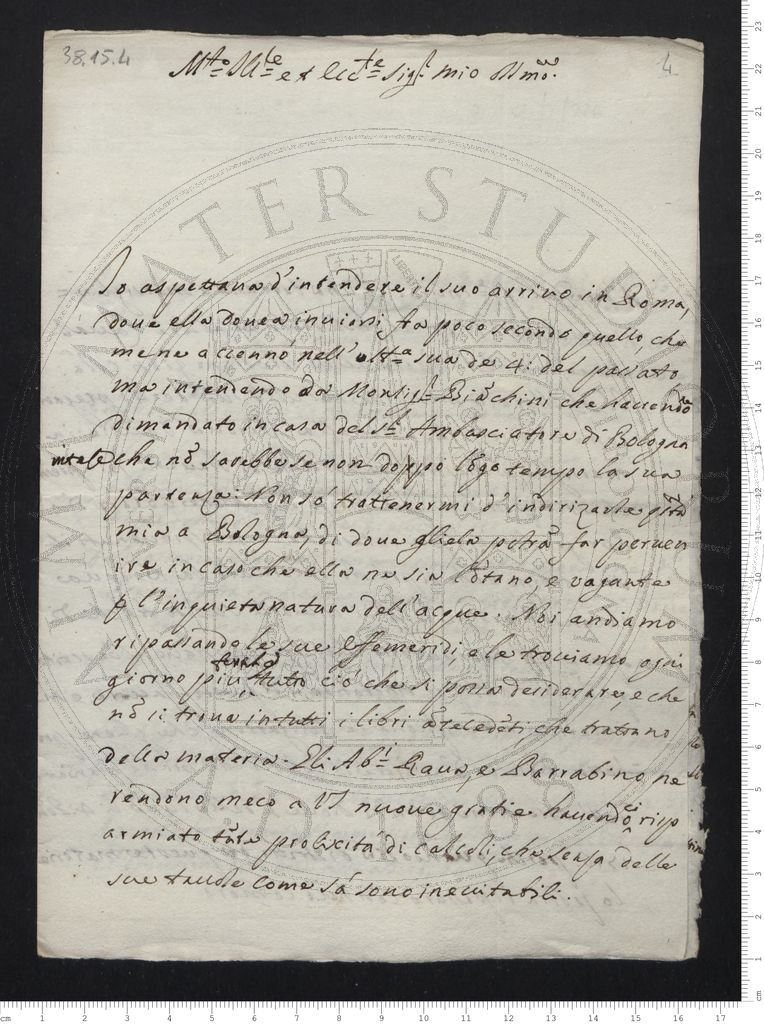 38.15.4
4
M.to Ill.re et Ecc.te Sig.r mio Oss.mo
Io aspettaua d'intendere il suo arriuo in Roma,
doue ella douea inuiarsi, fra poco secondo quello, che
me ne accennò nell' sua de 4: del passato
ma intendendo da Monsig.r Biãchini che hauendo
dimandato in casa del S.r Ambasciatore di Bologna
che nõ sarebbe se non doppo lõgo tempo la sua
partenza: Non sò trattenermi d'indirizzarle
mia a Bologna, di doue gliela potrà far peruen
ire in caso che ella ne sia lõtano, e vagante
p l'inquieta natura dell'acque. Noi andiamo
ripassando le sue Effemeridi, e le trouiamo ogni
giorno più tutto ciò che si possa desiderare, e che
nõ si troua in tutti i libri ãtecedẽti, che trattano
della materia. Gli Ab.i Raua, e Barrabino ne
rendono meco a VS nuoue gratie hauendoci risp
armiato tãta prolixità di calcoli, che senza delle
sue tauole come sà sono ineuitabili.